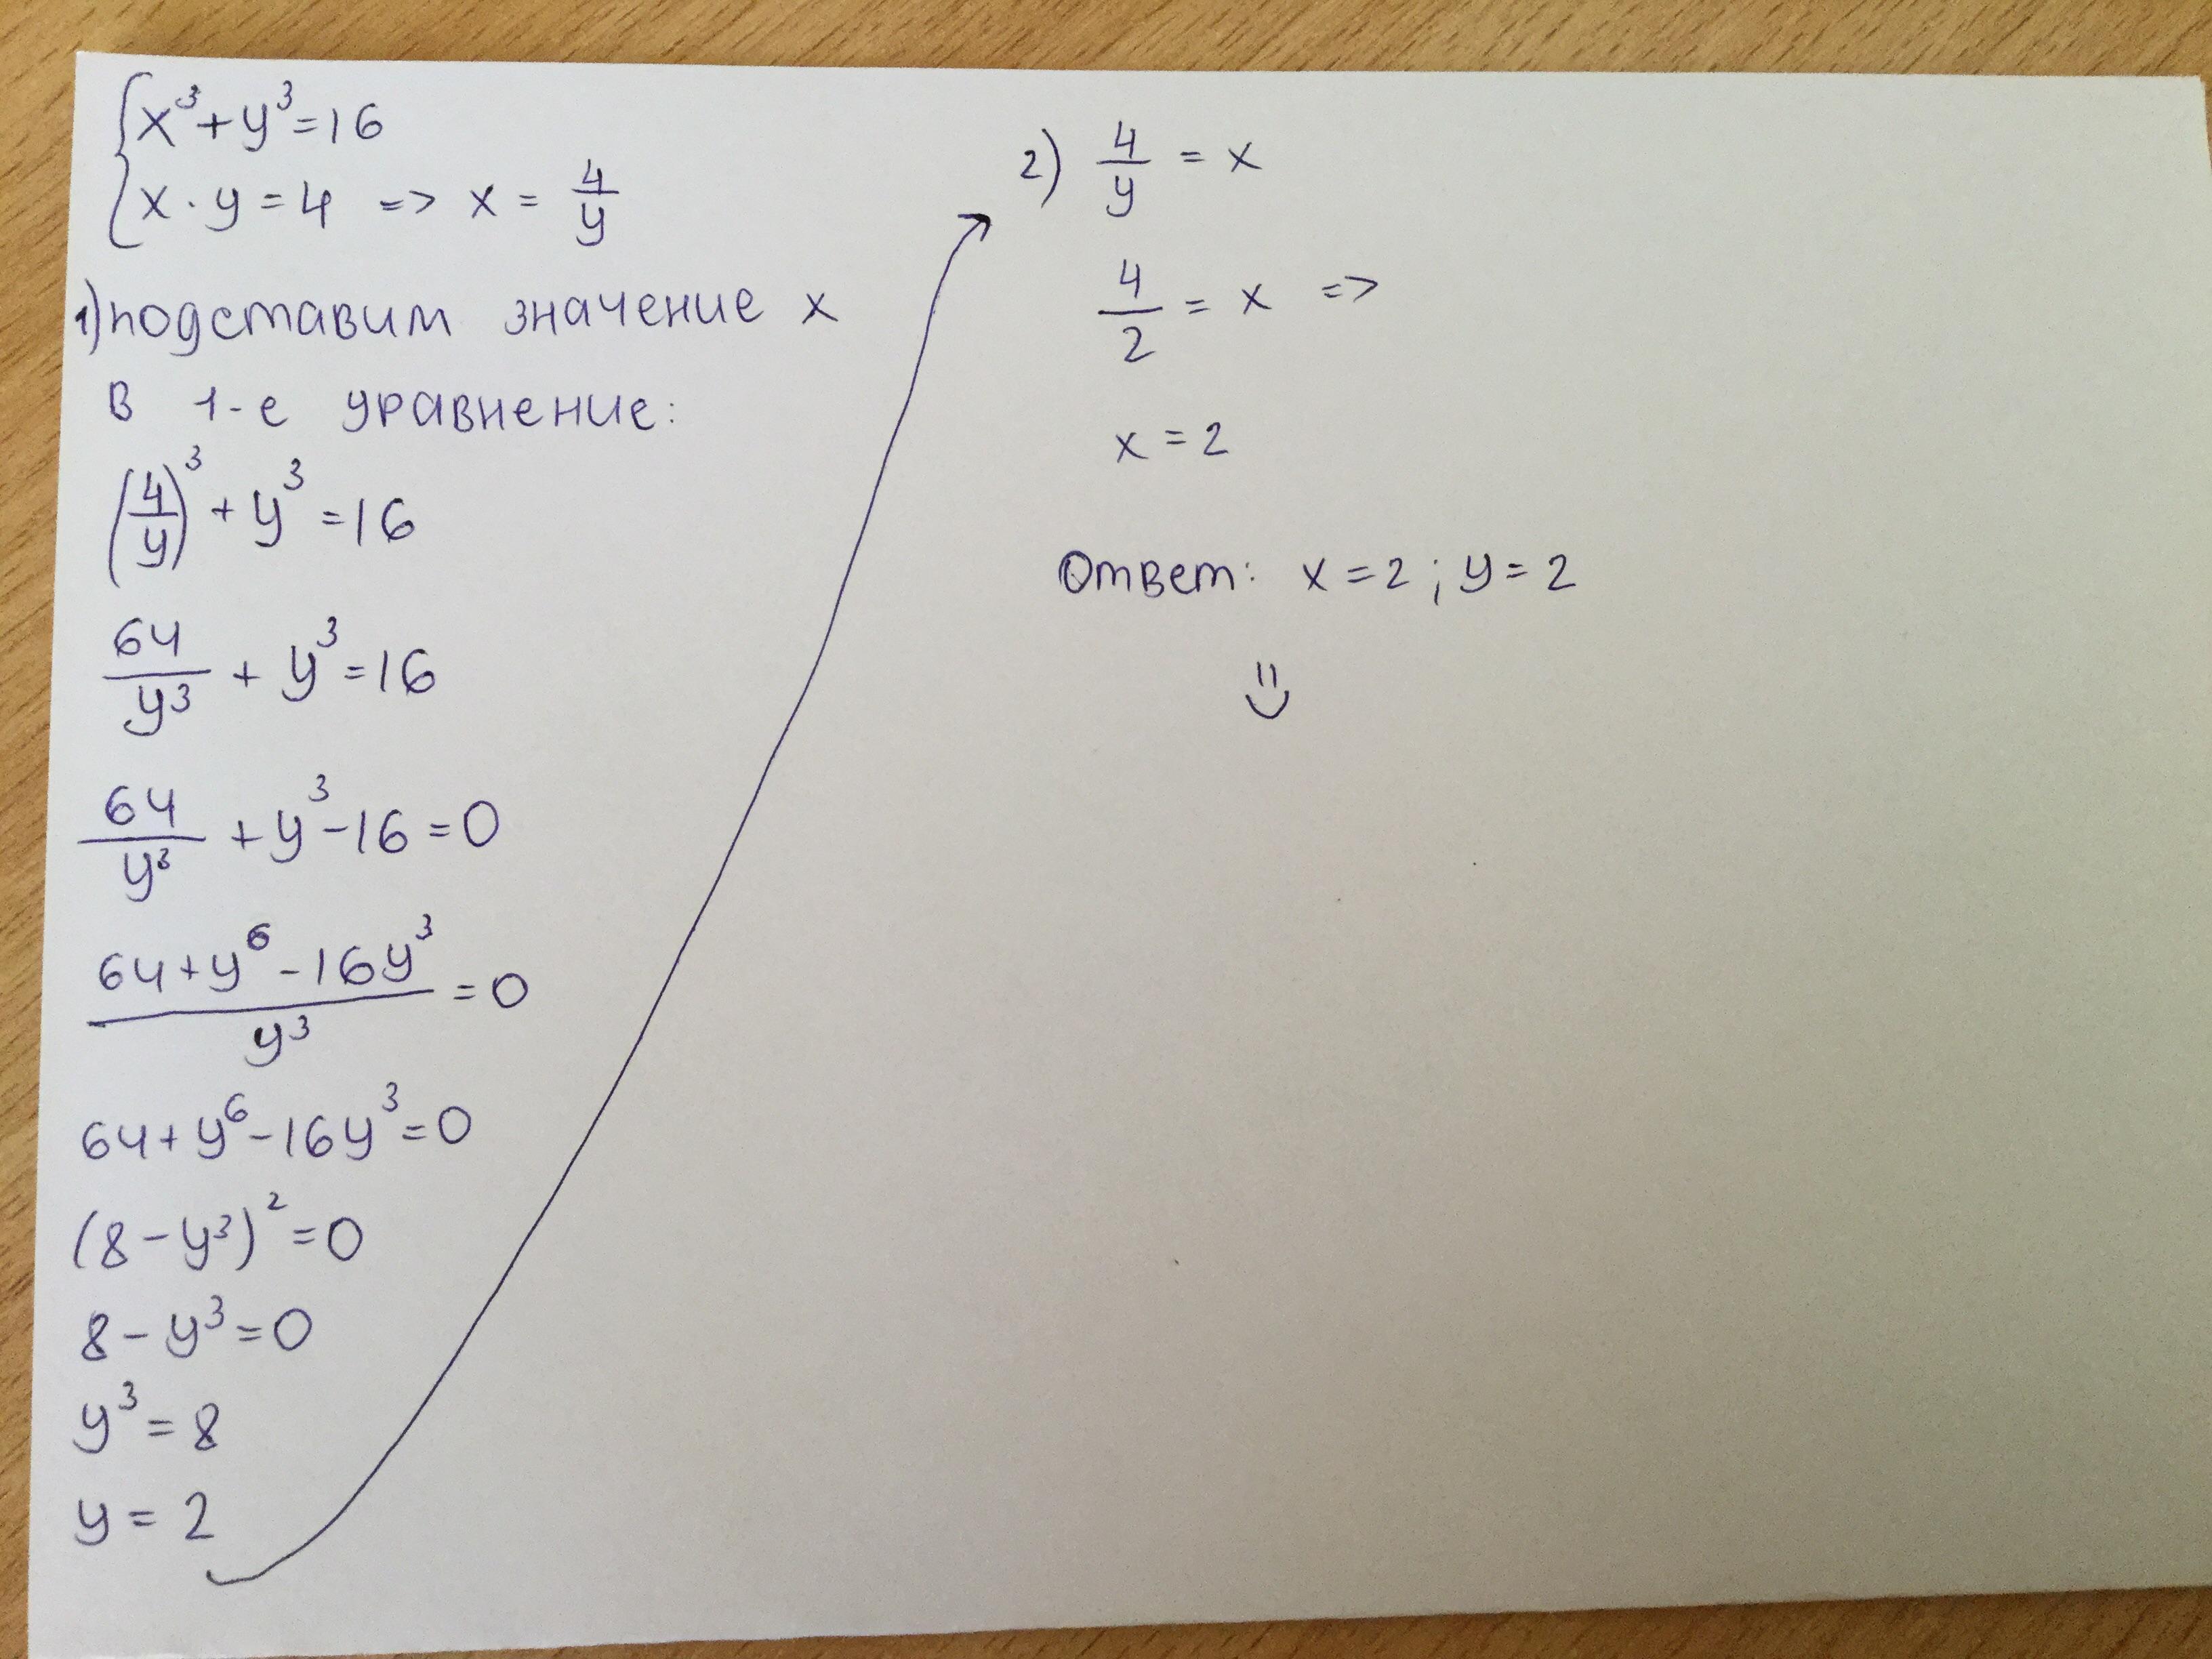 {x³+y³=16
x·y=4 => x = 4/y
1) подставим значение x
в 1-е уравнение:
(4/y)³ + y³ = 16
64/y³ + y³ = 16
64/y³ + y³ - 16 = 0
(64 + y⁶ - 16y³)/y³ = 0
64 + y⁶ - 16y³ = 0
(8 - y³)² = 0
8 - y³ = 0
y³ = 8
y = 2
2) 4/y = x
4/2 = x =>
x = 2
Ответ: x = 2; y = 2